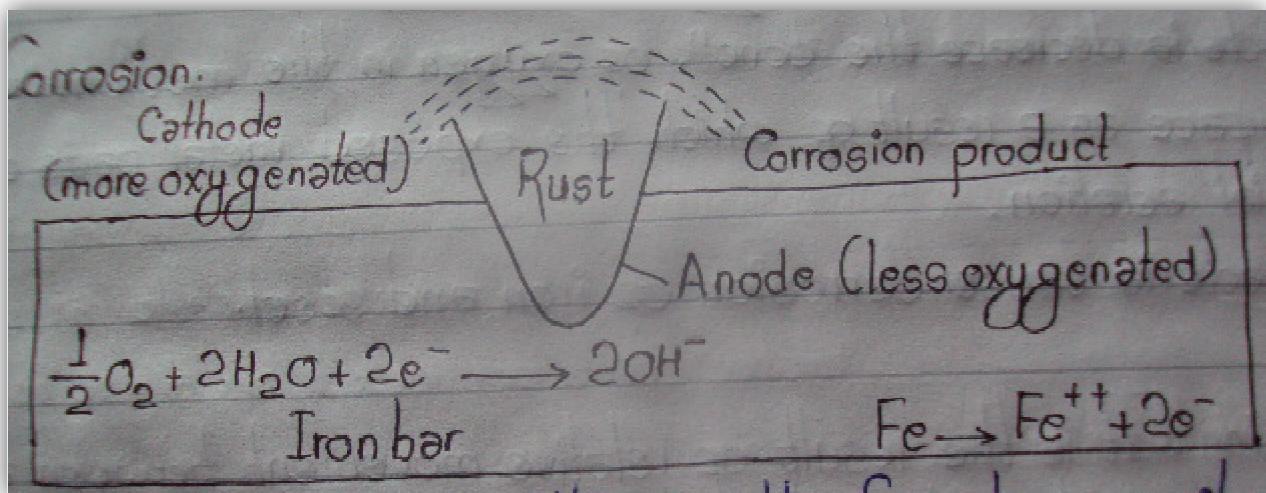 Corrosion.
Cathode
(more oxygenated)
Rust
Corrosion product
Anode (less oxygenated)
1/2 O₂ + 2H₂O + 2e⁻ → 2OH⁻
Iron bar
Fe → Fe⁺⁺ + 2e⁻